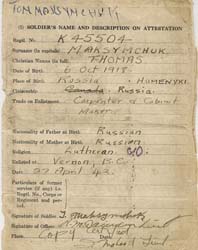 TOM MAKSYMCHUK
(1) SOLDIER'S NAME AND DESCRIPTION ON ATTESTATION
Regtl. No. K 45504
Surname (in capitals) MAKSYMCHUK
Christian Names (in full) THOMAS
Date of Birth 6 Oct 1918
Place of Birth Russia - HOMENYKI
Citizenship Canada Russia.
Trade on Enlistment Carpenter & Cabinet
Maker
Nationality of Father at Birth Russian
Nationality of Mother at Birth Russian
Religion Lutheran
Enlisted at Vernon, B.C.
Date 27 April 42.
Particulars of former
service (if any) i.e.
Regtl. No., Corps or
Regiment and period.
Signature of Soldier T. Maksymchuk
Signature of Officer
Place